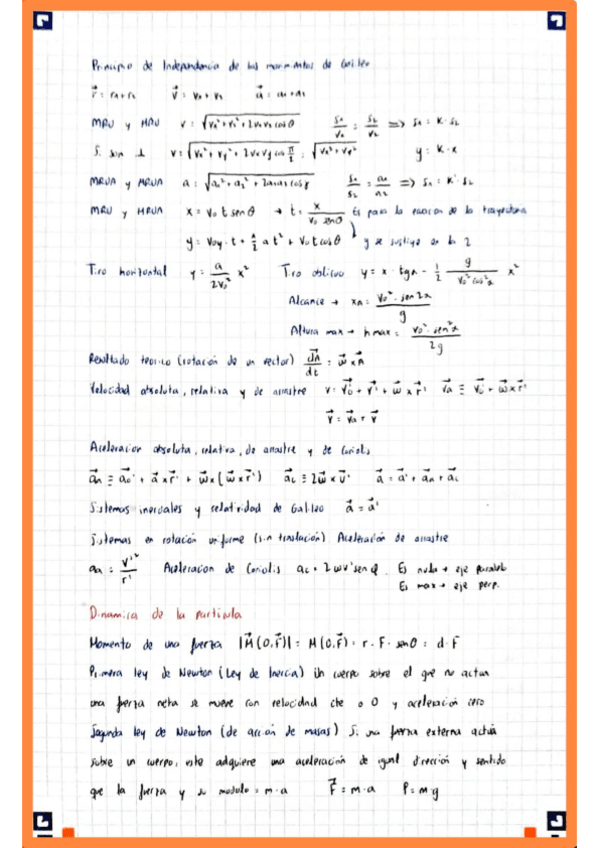 Principio de Independencia de los movimientos de Galileo
r⃗ = r₁+r₂   v⃗ = v₁+v₂   a⃗ = a₁+a₂
MRU y MRU   v = √(v₁²+v₂²+2v₁v₂cosθ)   s₁/v₁ = s₂/v₂ => s₁ = K·s₂
Si son ⊥   v = √(vx²+vy²+2vxvy cos π/2) = √(vx²+vy²)   y = K·x
MRUA y MRUA   a = √(a₁²+a₂²+2a₁a₂cosγ)   s₁/s₂ = a₁/a₂ => s₁ = K'·s₂
MRU y MRUA   x = v₀ t senθ → t = x/(v₀ senθ)   Es para la ecuación de la trayectoria
y = v₀y·t + ½ a t² + v₀ t cosθ   y se sustituye en la 2
Tiro horizontal   y = a/(2v₀²) x²   Tiro oblicuo   y = x·tgα - ½ g/(v₀²cos²α) x²
Alcance → xA = v₀²·sen2α/g
Altura max → hmax = v₀²·sen²α/2g
Resultado teórico (rotación de un vector)   dA⃗/dt = ω⃗ x A⃗
Velocidad absoluta, relativa y de arrastre   v = v⃗₀' + v⃗' + ω⃗ x r⃗'   v⃗a ≡ v⃗₀' + ω⃗ x r⃗'
v⃗ = v⃗a + v⃗'
Aceleración absoluta, relativa, de arrastre y de Coriolis
a⃗a ≡ a⃗₀' + α⃗ x r⃗' + ω⃗ x (ω⃗ x r⃗')   a⃗c ≡ 2ω⃗ x v⃗'   a⃗ = a⃗' + a⃗a + a⃗c
Sistemas inerciales y relatividad de Galileo   a⃗ = a⃗'
Sistemas en rotación uniforme (sin traslación) Aceleración de arrastre
aa = v'²/r'   Aceleración de Coriolis   ac = 2ωv'senφ   Es nula → eje paralelo
Es max → eje perp.
Dinamica de la particula
Momento de una fuerza   |M⃗(O,F⃗)| = M(O,F⃗) = r·F·senθ = d·F
Primera ley de Newton (Ley de Inercia) Un cuerpo sobre el que no actua
una fuerza neta se mueve con velocidad cte o 0 y aceleración cero
Segunda ley de Newton (de acción de masas) Si una fuerza externa actúa
sobre un cuerpo, este adquiere una aceleración de igual dirección y sentido
que la fuerza y su modulo = m·a   F⃗ = m·a   P = m·g